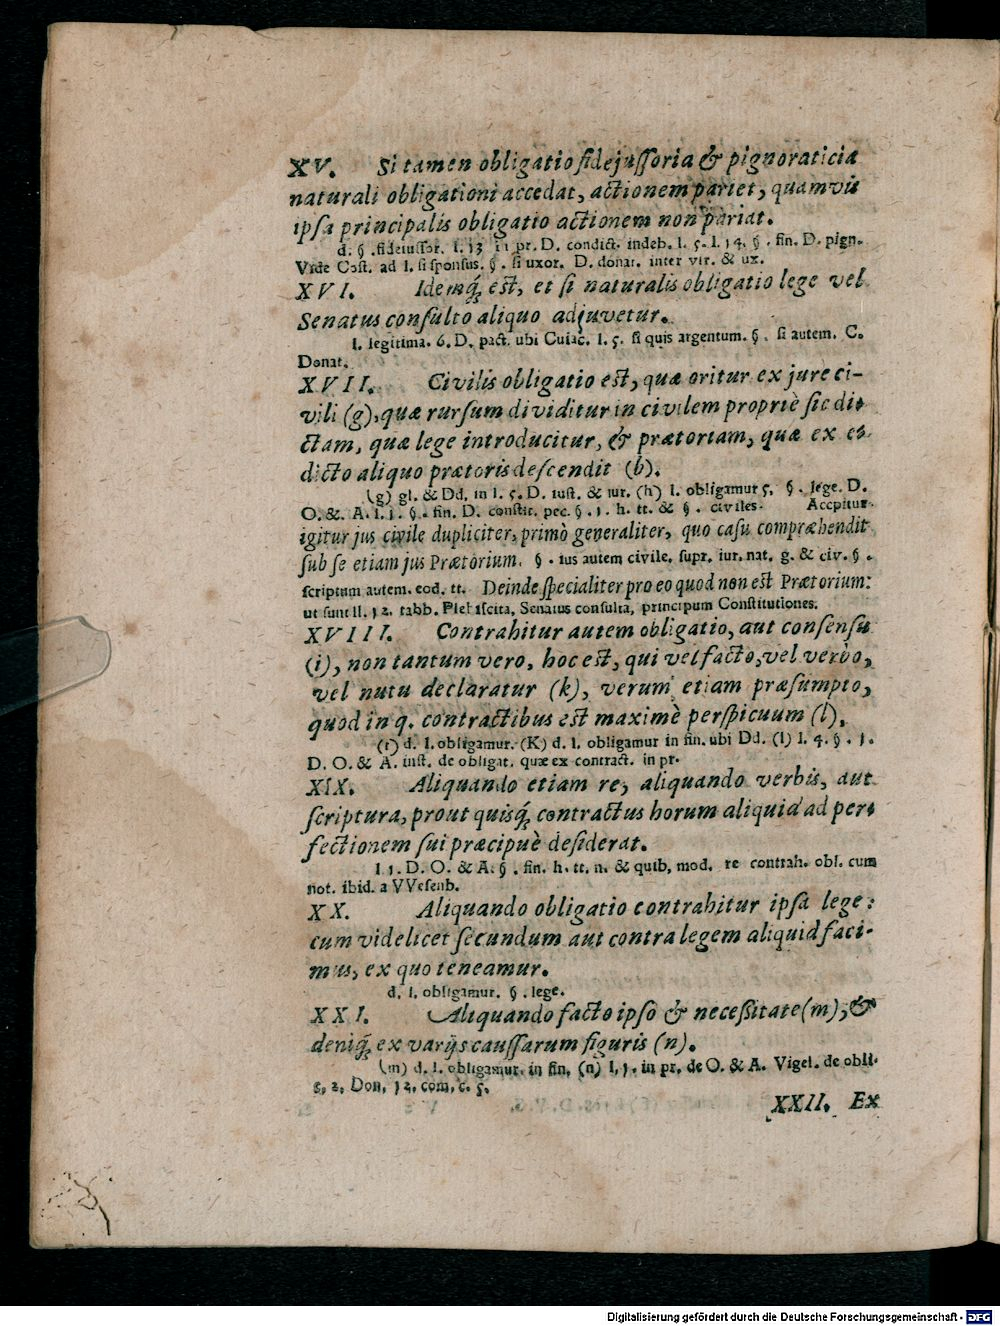 XV. Si tamen obligatio fidejussoria & pignoraticia
naturali obligationi accedat, actionem pariet, quamvis
ipsa principalis obligatio actionem non pariat.
d. § .fideiussor. l. 13 in pr. D. condict. indeb. l. 5. l. 14. § . fin. D. pign.
Vide Cost. ad l. si sponsus. § . si uxor. D. donat. inter vir. & ux.
XVI. Idemq́; est, et si naturalis obligatio lege vel
Senatus consulto aliquo adjuvetur.
l. legitima. 6. D. pact. ubi Cuiac. l. 5. si quis argentum. § . si autem. C.
Donat.
XVII. Civilis obligatio est, quæ oritur ex jure ci-
vili (g), quæ rursum dividitur in civilem propriè sic di-
ctam, quæ lege introducitur, & prætoriam, quæ ex e-
dicto aliquo prætoris descendit (h).
(g) gl. & Dd. in l. 5. D. iust. & iur. (h) l. obligamur 5. § . lege. D.
O. &. A. l. 1. § . fin. D. constit. pec. § . 1. h. tt. & § . civiles. Accpitur
igitur jus civile dupliciter, primò generaliter, quo casu compræhendit
sub se etiam jus Prætorium. § . ius autem civile. supr. iur. nat. g. & civ. § .
scriptum autem. eod. tt. Deinde specialiter pro eo quod non est Prætorium:
ut sunt ll. 12. tabb. Plebiscita, Senatus consulta, principum Constitutiones.
XVIII. Contrahitur autem obligatio, aut consensu
(i), non tantum vero, hoc est, qui vel facto, vel verbo,
vel nutu declaratur (k), verum etiam præsumpto,
quod in q. contractibus est maximè perspicuum (l).
(i) d. l. obligamur. (K) d. l. obligamur in fin. ubi Dd. (l) l. 4. § . 1.
D. O. & A. inst. de obligat. quæ ex contract. in pr.
XIX. Aliquando etiam re, aliquando verbis, aut
scriptura, prout quisq́; contractus horum aliquid ad per-
fectionem sui præcipuè desiderat.
l 1. D. O. & A. § . fin. h. tt. n. & quib, mod. re contrah. obl. cum
not. ibid. a VVesenb.
XX. Aliquando obligatio contrahitur ipsa lege:
cum videlicet secundum aut contra legem aliquid faci-
mus, ex quo teneamur.
d. l. obligamur. § . lege.
XXI. Aliquando facto ipso & necessitate (m), &
deniq́; ex varijs caussarum figuris (n).
(m) d. l. obligamur. in fin. (n) l. 1. in pr. de O. & A. Vigel. de obli-
5, 2, Don, 12. com, c. 5.
XXII. Ex
Digitalisierung gefördert durch die Deutsche Forschungsgemeinschaft - DFG